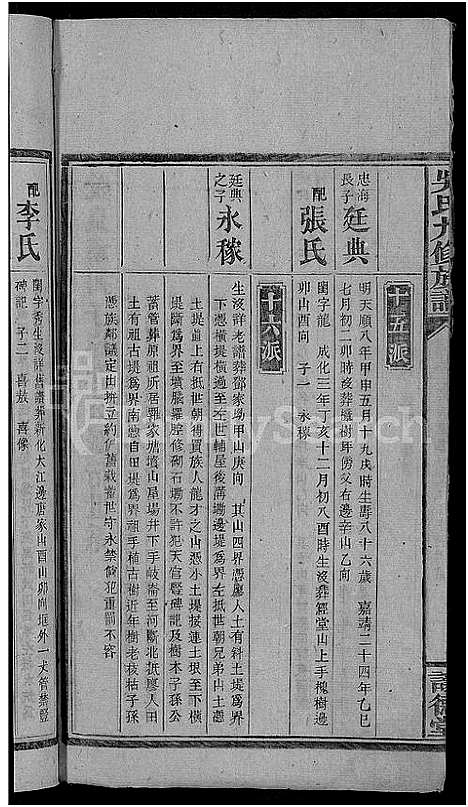 吳氏九修族譜
十五派
忠海長子 廷典
明天順八年甲申五月十九戌時生壽八十六歲 嘉靖二十四年乙巳
七月初二卯時沒葬 樹年傍父右邊辛山乙向
配 張氏
閨字龍 成化三年丁亥十二月初八酉時生沒葬經堂山上手槐樹邊
卯山酉向 子一 永稼
十六派
廷典之子 永稼
生沒詳老譜葬鄒家塲甲山庚向 其山四界憑廖人土有科土堤爲界
下憑橫堤橫過至世輔屋後溝塲邊堤爲界左抵世朝兄弟山土
土堤直上右抵世朝得買族人龍才之山憑小土堤接連土垠至下橫
堤斷爲界至墳脈羅腔修砌石塲不許犯天官豎碑記及樹木子孫公
蓄管葬原祖所居羅家塘灣山屋塲井下手岐崙至河斷北抵廖人田
爲界南憑自田垠爲界祖手植古樹近年樹老枝枯子孫
憑族鄰議定由 立約仍舊栽蓄世守永禁倘犯重罰不容
配 李氏
閨字秀生沒詳舊譜葬新化大江邊唐家山酉山卯向垠外一丈管禁豎
碑記 子二 喜敖 喜像